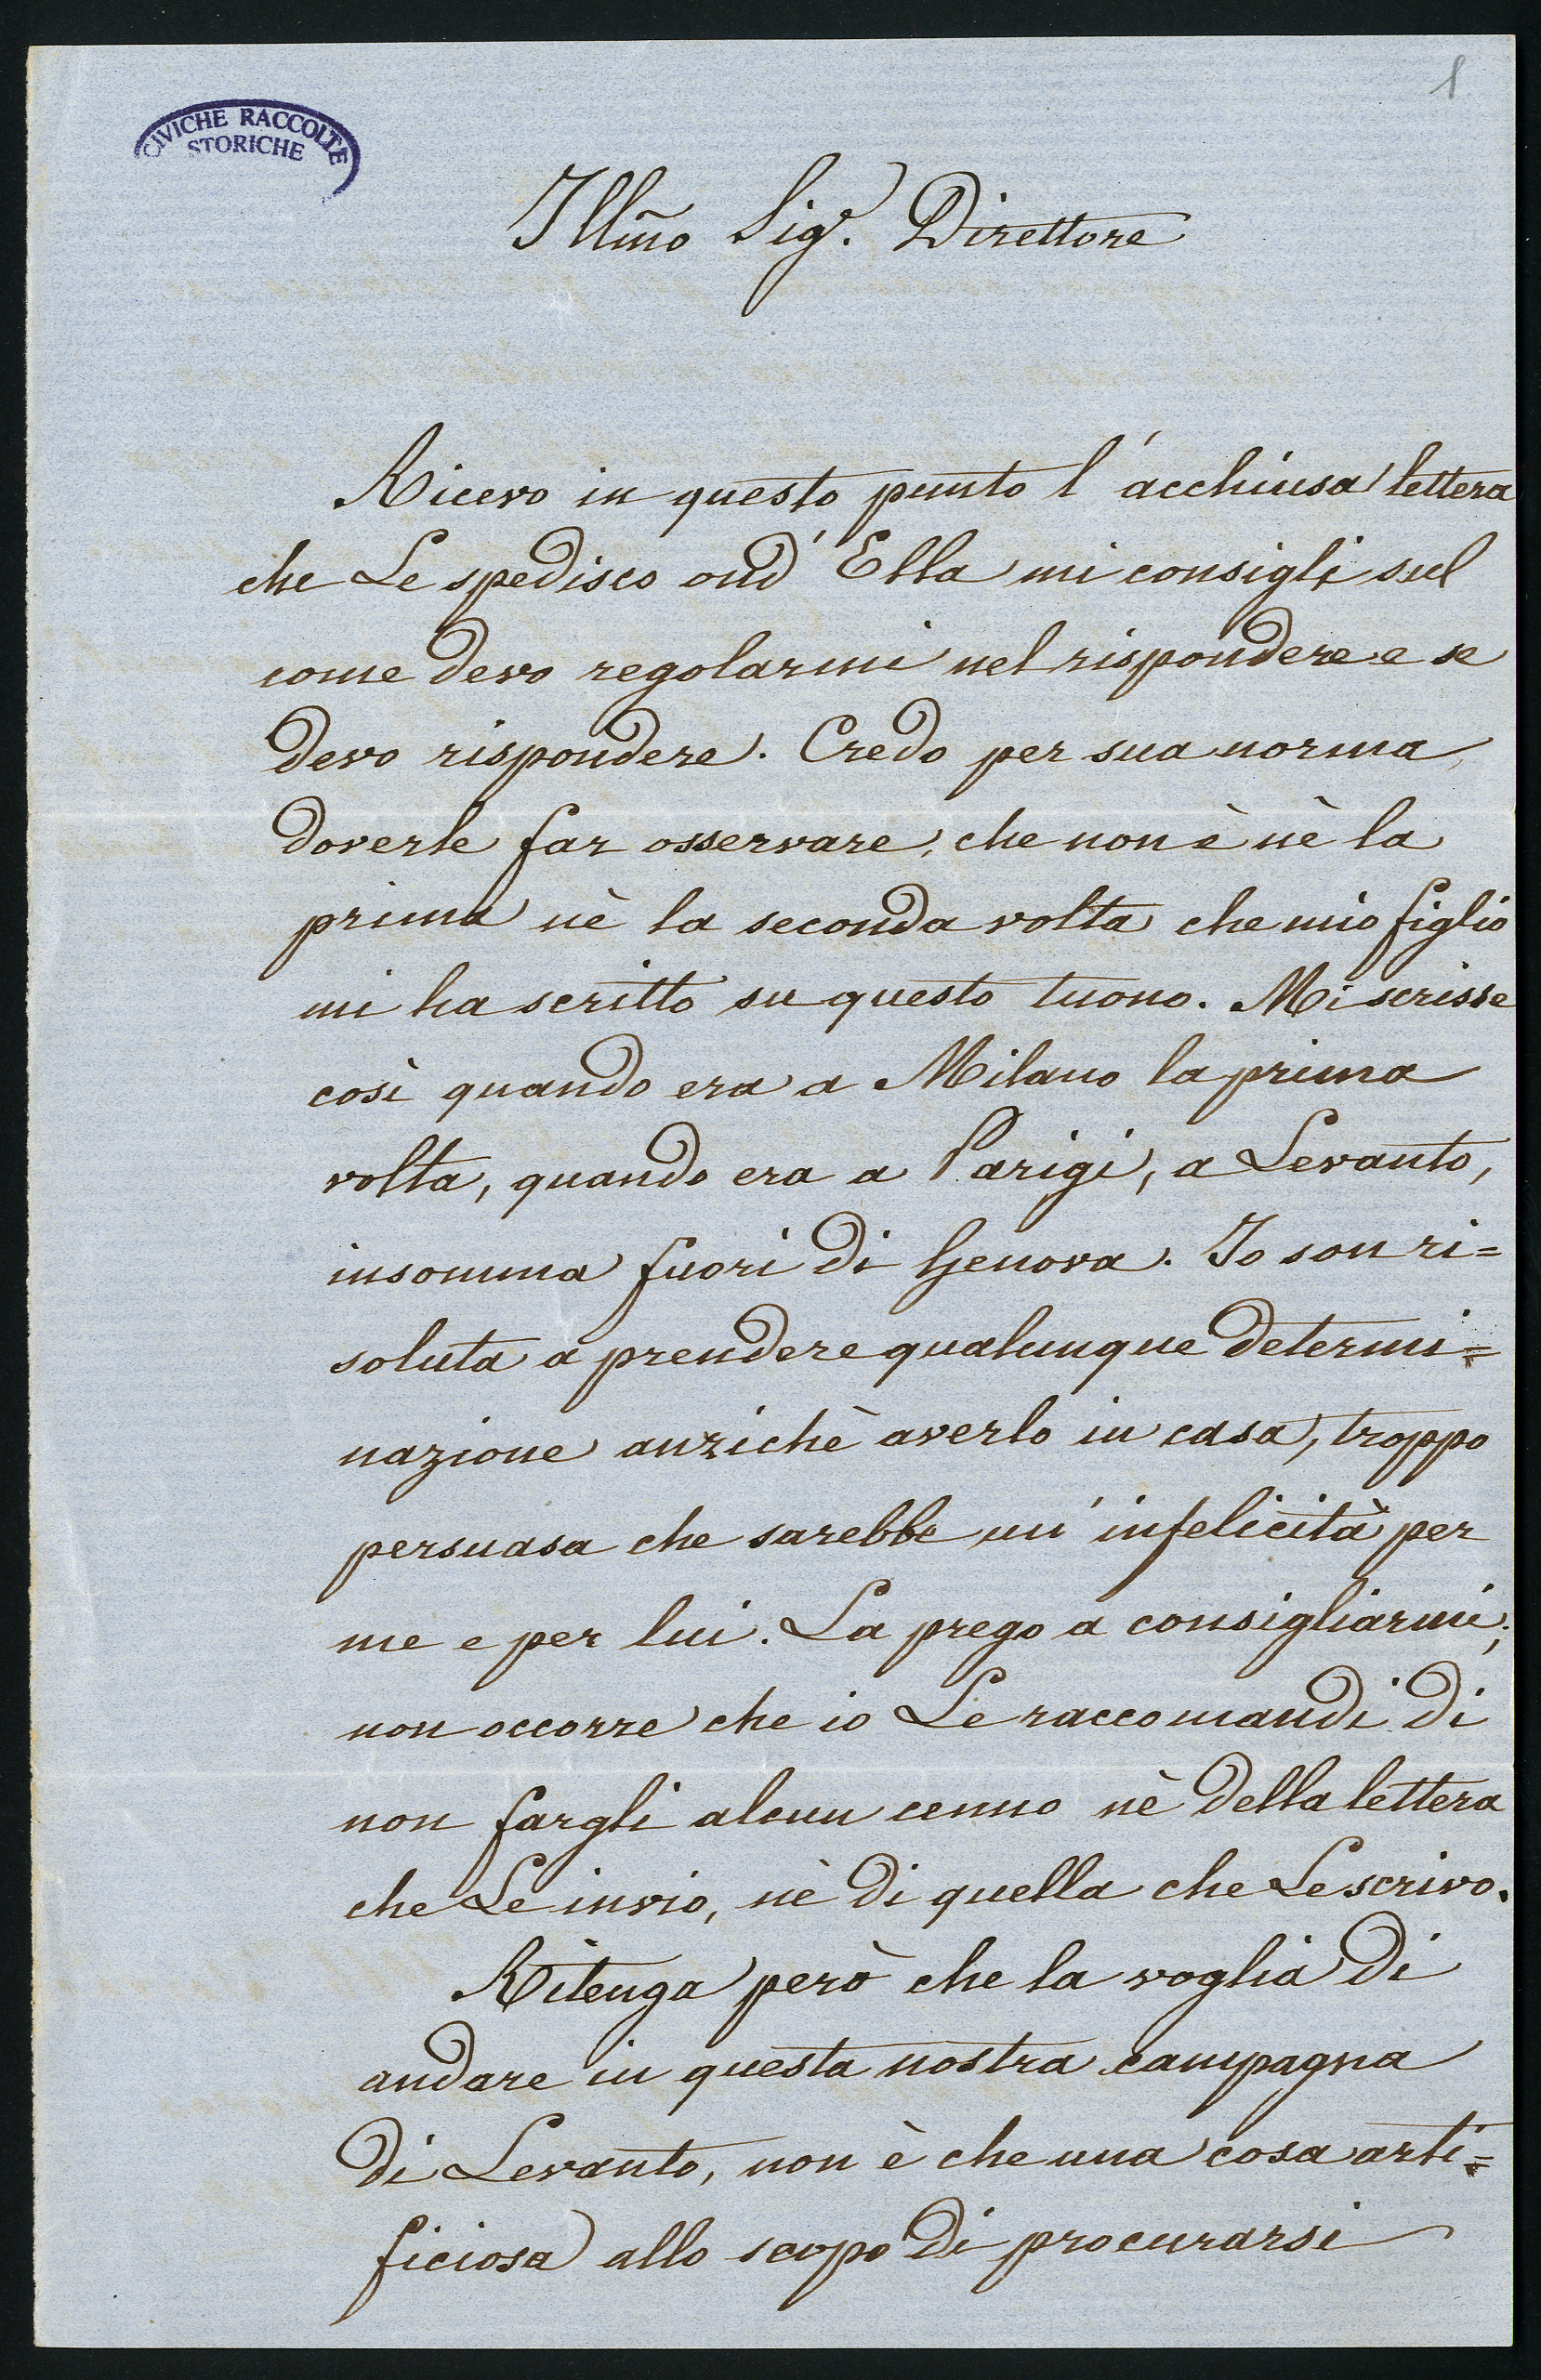 1
CIVICHE RACCOLTE
STORICHE
Illm̃o Sigr. Direttore
Ricevo in questo punto l'acchiusa lettera
che Le spedisco ond' Ella mi consigli sul
come devo regolarmi nel rispondere e se
devo rispondere. Credo per sua norma,
doverle far osservare, che non è nè la
prima nè la seconda volta che mio figlio
mi ha scritto su questo tuono. Mi scrisse
così quando era a Milano la prima
volta, quando era a Parigi, a Levanto,
insomma fuori di Genova. Io son ri=
soluta a prendere qualunque determi=
nazione anzichè averlo in casa, troppo
persuasa che sarebbe un' infelicità per
me e per lui. La prego a consigliarmi;
non occorre che io Le raccomandi di
non fargli alcun cenno nè della lettera
che Le invio, nè di quella che Le scrivo.
Ritenga però che la voglia di
andare in questa nostra campagna
di Levanto, non è che una cosa arti=
ficiosa allo scopo di procurarsi